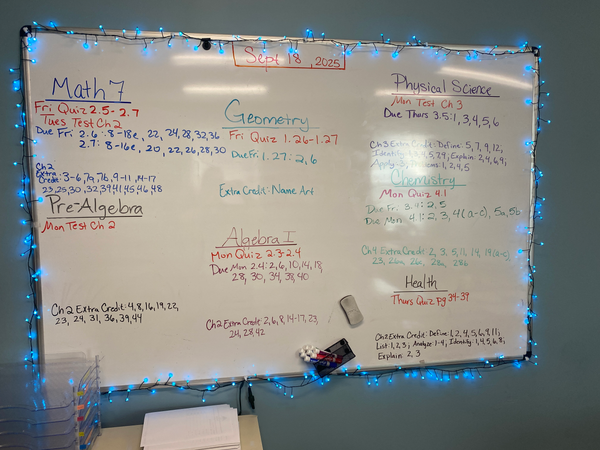 Sept 18, 2025
Math 7
Fri Quiz 2.5-2.7
Tues Test Ch 2
Due Fri 2.6: 8-18e, 22, 24, 28, 32, 36
2.7: 8-16e, 20, 22, 26, 28, 30
Ch 2
Extra
Credit: 3-6, 7a, 7b, 9-11, 14-17
23, 25, 30, 32, 39, 41, 45, 46, 48
Pre-Algebra
Mon Test Ch 2
Ch 2 Extra Credit: 4, 8, 16, 19, 22,
23, 24, 31, 36, 39, 44
Geometry
Fri Quiz 1.26-1.27
Due Fri: 1.27: 2, 6
Extra Credit: Name Art
Algebra I
Mon Quiz 2.3-2.4
Due Mon 2.4: 2, 6, 10, 14, 18,
28, 30, 34, 38, 40
Ch 2 Extra Credit 2, 6, 8, 14-17, 23,
24, 28, 42
Physical Science
Mon Test Ch 3
Due Thurs 3.5: 1, 3, 4, 5, 6
Ch 3 Extra Credit: Define: 5, 7, 9, 12,
Identify: 4, 5, 24, Explain: 2, 4, 6, 9,
Apply: 1, 2, 4, 5
Chemistry
Mon Quiz 4.1
Due Fri 3.4: 2, 5
Due Mon: 4.1: 2, 3, 4(a-c), 5a, 5b
Ch 4 Extra Credit: 2, 3, 5, 11, 14, 19(a-c),
23, 26a, 26c, 28a, 28b
Health
Thurs Quiz pg 34-39
Ch 2 Extra Credit: Define: 1, 2, 4, 5, 6, 9, 11;
List: 1, 2, 3; Analyze 1-4; Identify: 1, 4, 5, 6, 8;
Explain 2, 3